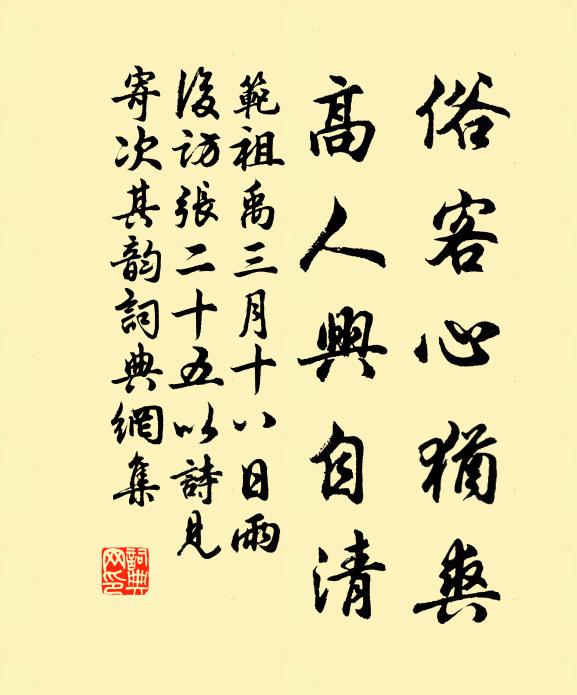 俗客心猶爽
高人興自清
範祖禹三月十八日雨
後訪張二十五以詩見
寄次其韵詞典網集
詞典
网印